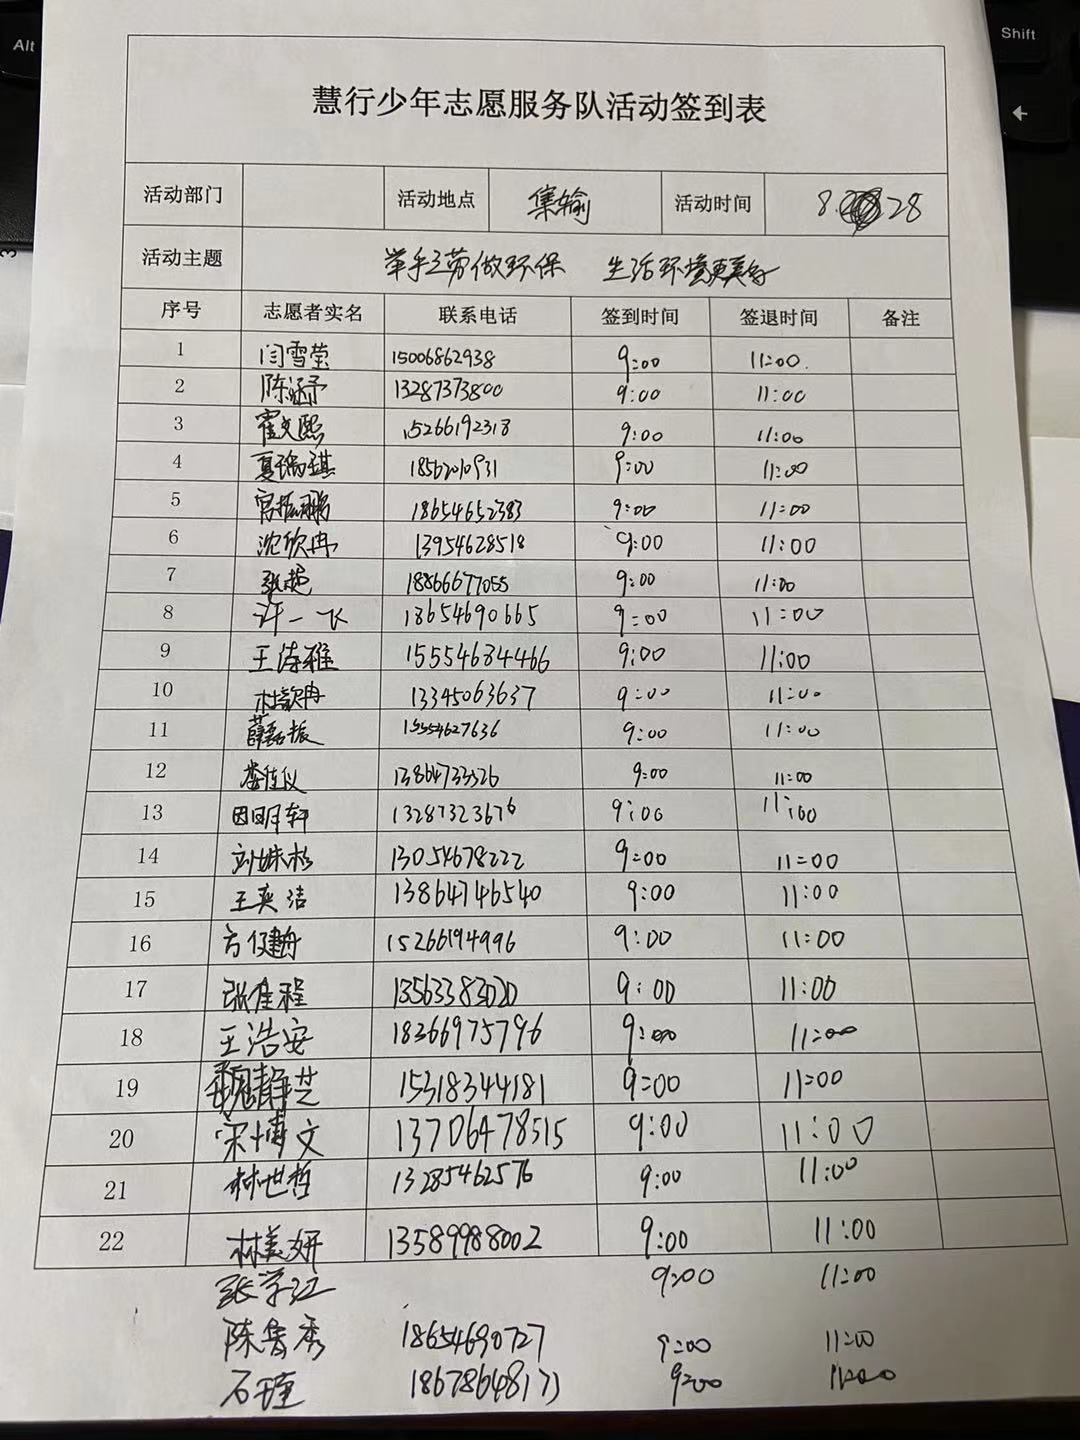 Alt
Shift
慧行少年志愿服务队活动签到表
活动部门 活动地点 集输 活动时间 8. 28
活动主题 举手之劳做环保 生活环境更美好
序号 志愿者实名 联系电话 签到时间 签退时间 备注
1 闫雪莹 15006862938 9:00 11:00
2 陈涵予 13287373800 9:00 11:00
3 霍文熙 15266192318 9:00 11:00
4 夏瑞琪 9:00 11:00
5 18654652383 9:00 11:00
6 沈欣冉 13954628518 9:00 11:00
7 张 18866677055 9:00 11:00
8 许一飞 18654690665 9:00 11:00
9 王涛雅 15554634466 9:00 11:00
10 13345063637 9:00 11:00
11 薛 振 15554627636 9:00 11:00
12 娄佳仪 9:00 11:00
13 明轩 13287323676 9:00 11:00
14 刘姝杉 13054678222 9:00 11:00
15 王奕洁 13864746540 9:00 11:00
16 方健舟 15266194996 9:00 11:00
17 张佳程 13563383020 9:00 11:00
18 王浩安 18366975796 9:00 11:00
19 魏静芝 15318344181 9:00 11:00
20 宋博文 13706478515 9:00 11:00
21 林世哲 13285462576 9:00 11:00
22 林美妍 13589988002 9:00 11:00
张学江 9:00 11:00
陈鲁秀 18654690727 9:00 11:00
石瑾 9:00 11:00